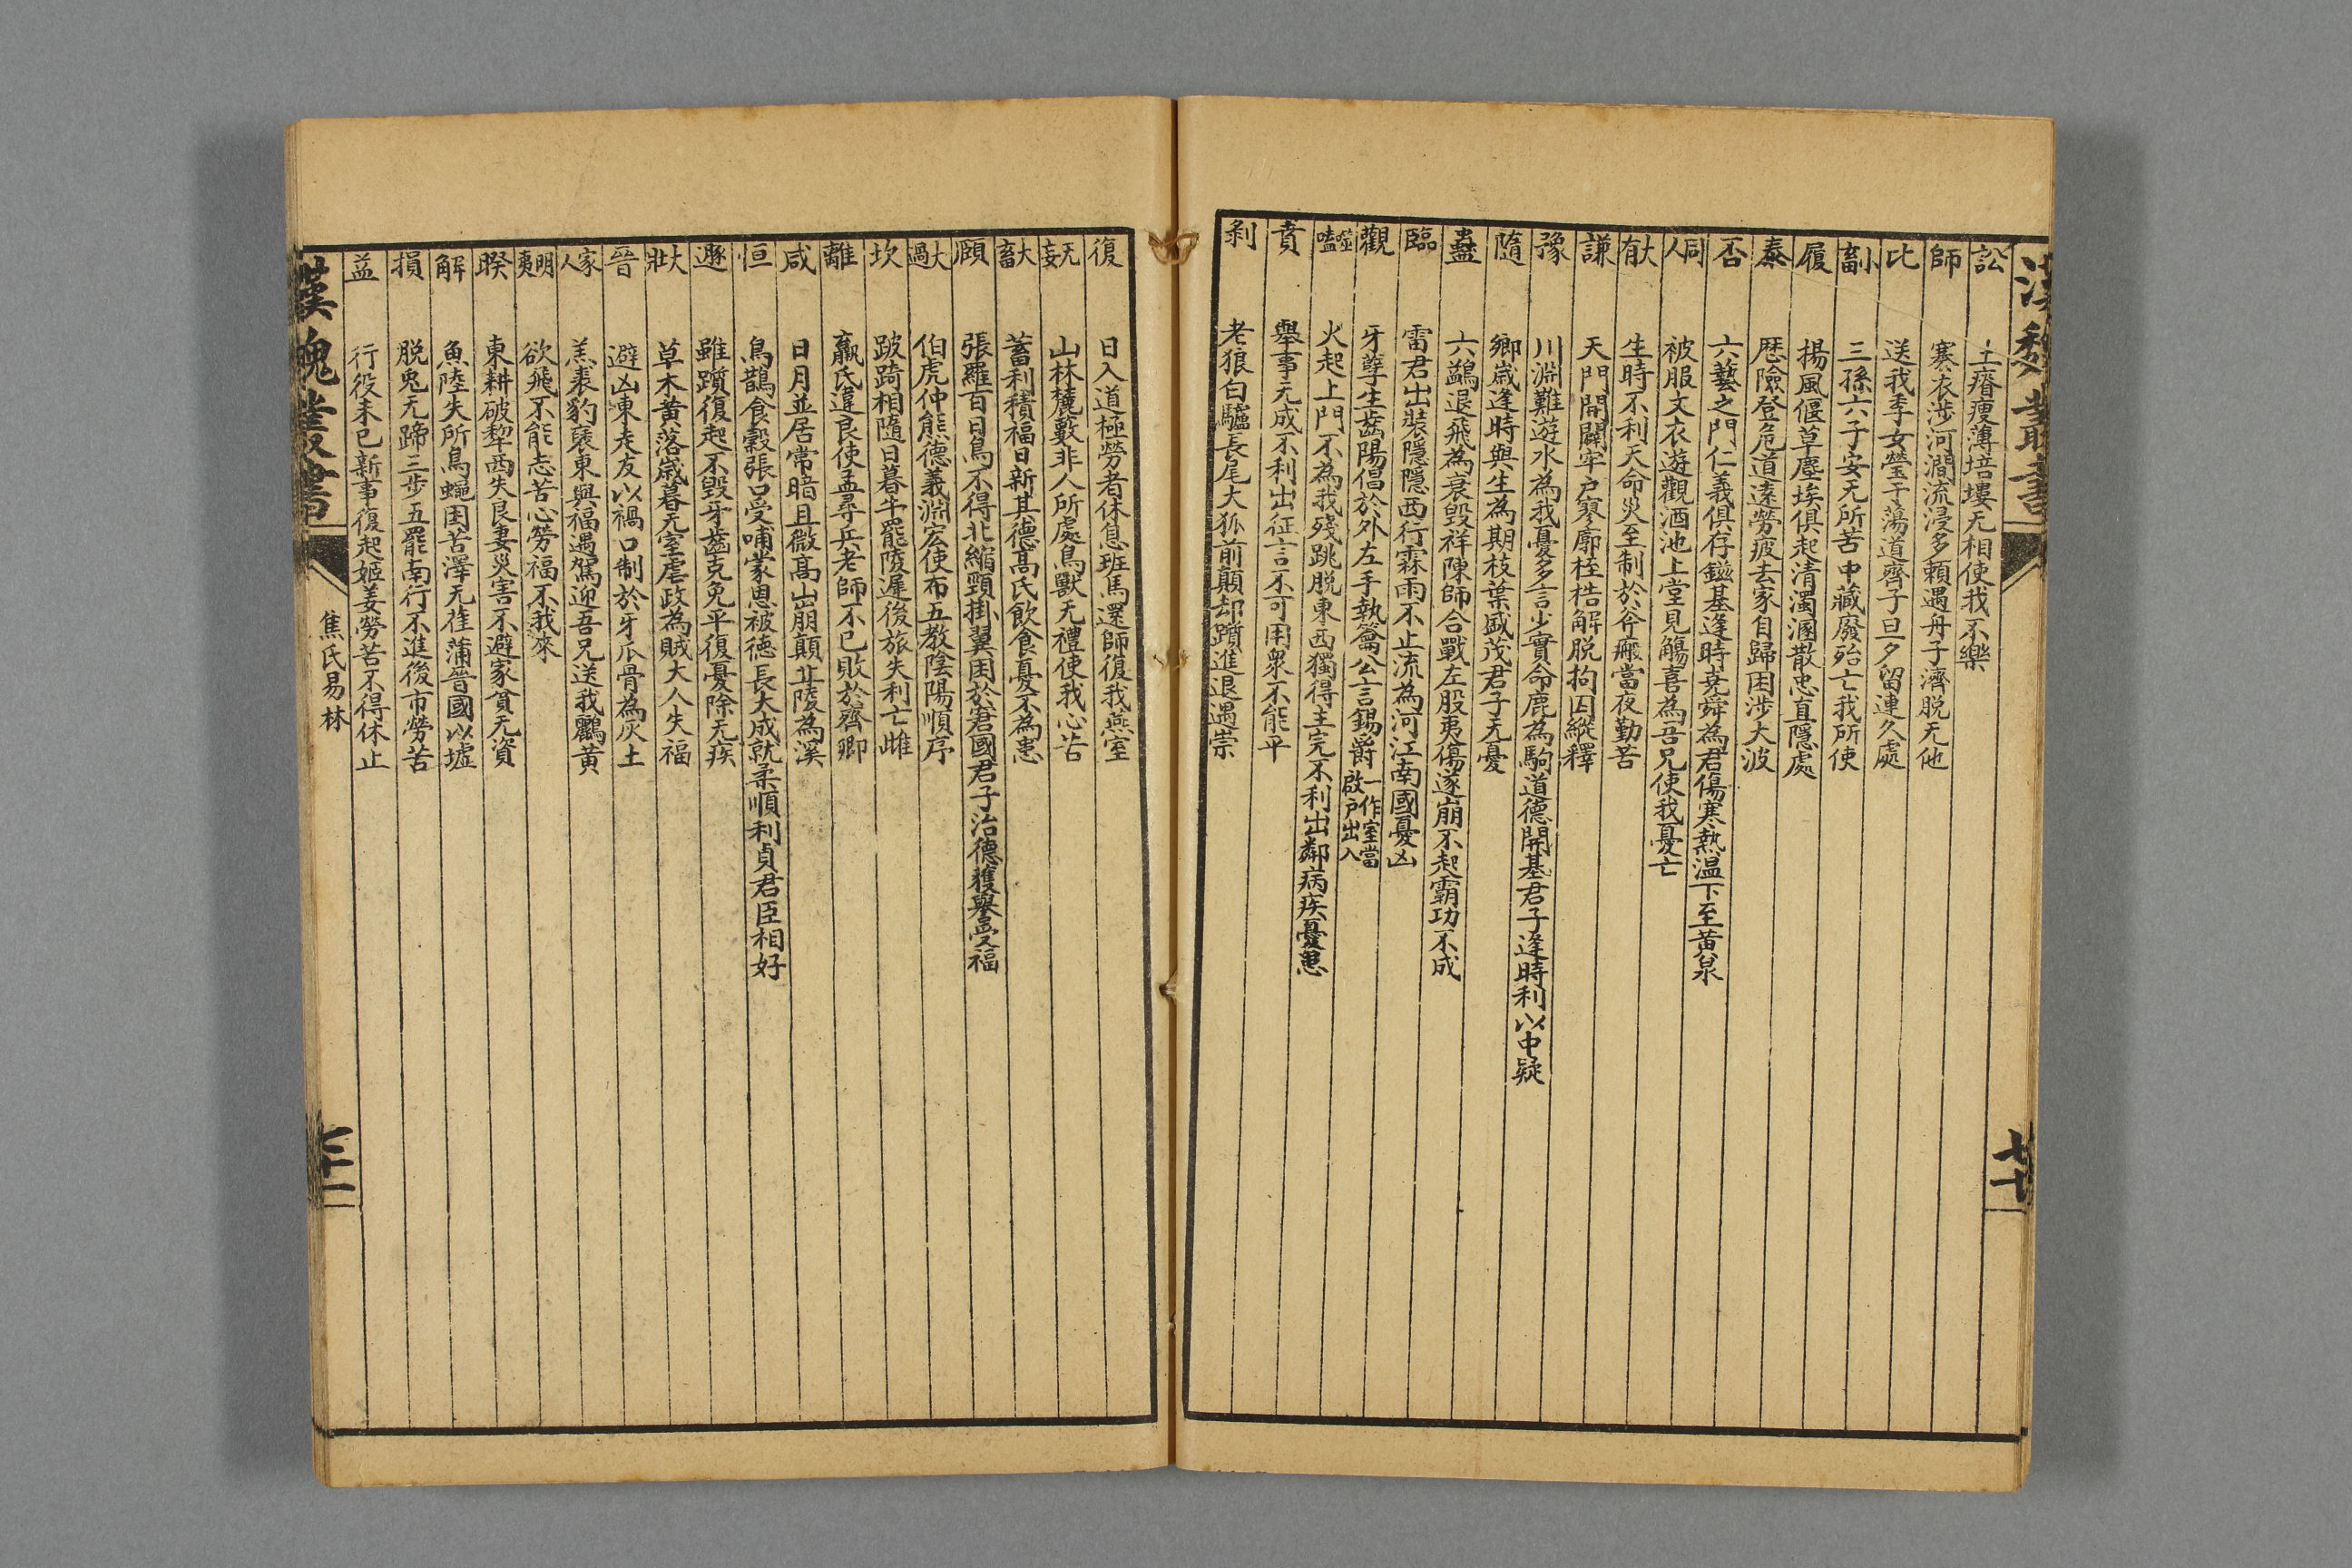 漢魏叢書
七十
訟 土瘠瘦薄培塿无相使我不樂
師 寒衣涉河澗流浸多賴遇舟子濟脱无他
比 送我季女至于蕩道齊子旦夕留連久處
小畜 三孫六子安无所苦中藏廢殆亡我所使
履 揚風偃草塵埃俱起清濁溷散忠直隱處
泰 歷險登危道遠勞疲去家自歸困涉大波
否 六藝之門仁義俱存鎡基逢時堯舜為君傷寒熱温下至黄泉
同人 被服文衣遊觀酒池上堂見觴喜為吾兄使我憂亡
大有 生時不利天命災至制於斧癍當夜勤苦
謙 天門開闢牢户寥廓桎梏解脱拘囚縱釋
豫 川淵難遊水為我憂多言少實命鹿為駒道德開基君子逢時利以中疑
隨 鄉歲逢時與生為期枝葉盛茂君子无憂
蠱 六鷁退飛為衰毁祥陳師合戰左股夷傷遂崩不起霸功不成
臨 雷君出裝隱隱西行霖雨不止流為河江南國憂凶
觀 牙孽生齒陽倡於外左手執籥公言錫爵 一作室當啟户出入
噬嗑 火起上門不為我殘跳脱東西獨得主完不利出鄰病疾憂患
賁 舉事无成不利出征言不可用衆不能平
剥 老狼白驢長尾大狐前顛却躓進退遇祟
復 日入道極勞者休息班馬還師復我燕室
无妄 山林麓藪非人所處鳥獸无禮使我心苦
大畜 蓄利積福日新其德高氏飲食憂不為患
頤 張羅百日鳥不得北縮頸掛翼困於窘國君子治德獲譽受福
大過 伯虎仲熊德義淵宏使布五教陰陽順序
坎 跛踦相隨日暮牛罷陵遲後旅失利亡雌
離 羸氏違良使孟尋兵老師不已敗於齊卿
咸 日月並居常暗且微高山崩顛丘陵為溪
恒 鳥鵲食穀張口受哺蒙恩被德長大成就柔順利貞君臣相好
遯 雖躓復起不毁牙齒克免平復憂除无疾
大壯 草木黄落歲暮无室虐政為賊大人失福
晉 避凶東走友以禍口制於牙爪骨為灰土
家人 羔裘豹襃東與福遇駕迎吾兄送我鸝黄
明夷 欲飛不能志苦心勞福不我來
睽 東耕破犂西失良妻災害不避家貧无資
解 魚陸失所鳥蠅困苦澤无萑蒲晉國以墟
損 脱兔无蹄三步五罷南行不進後市勞苦
益 行役未已新事復起姬姜勞苦不得休止
漢魏叢書
焦氏易林
七十一